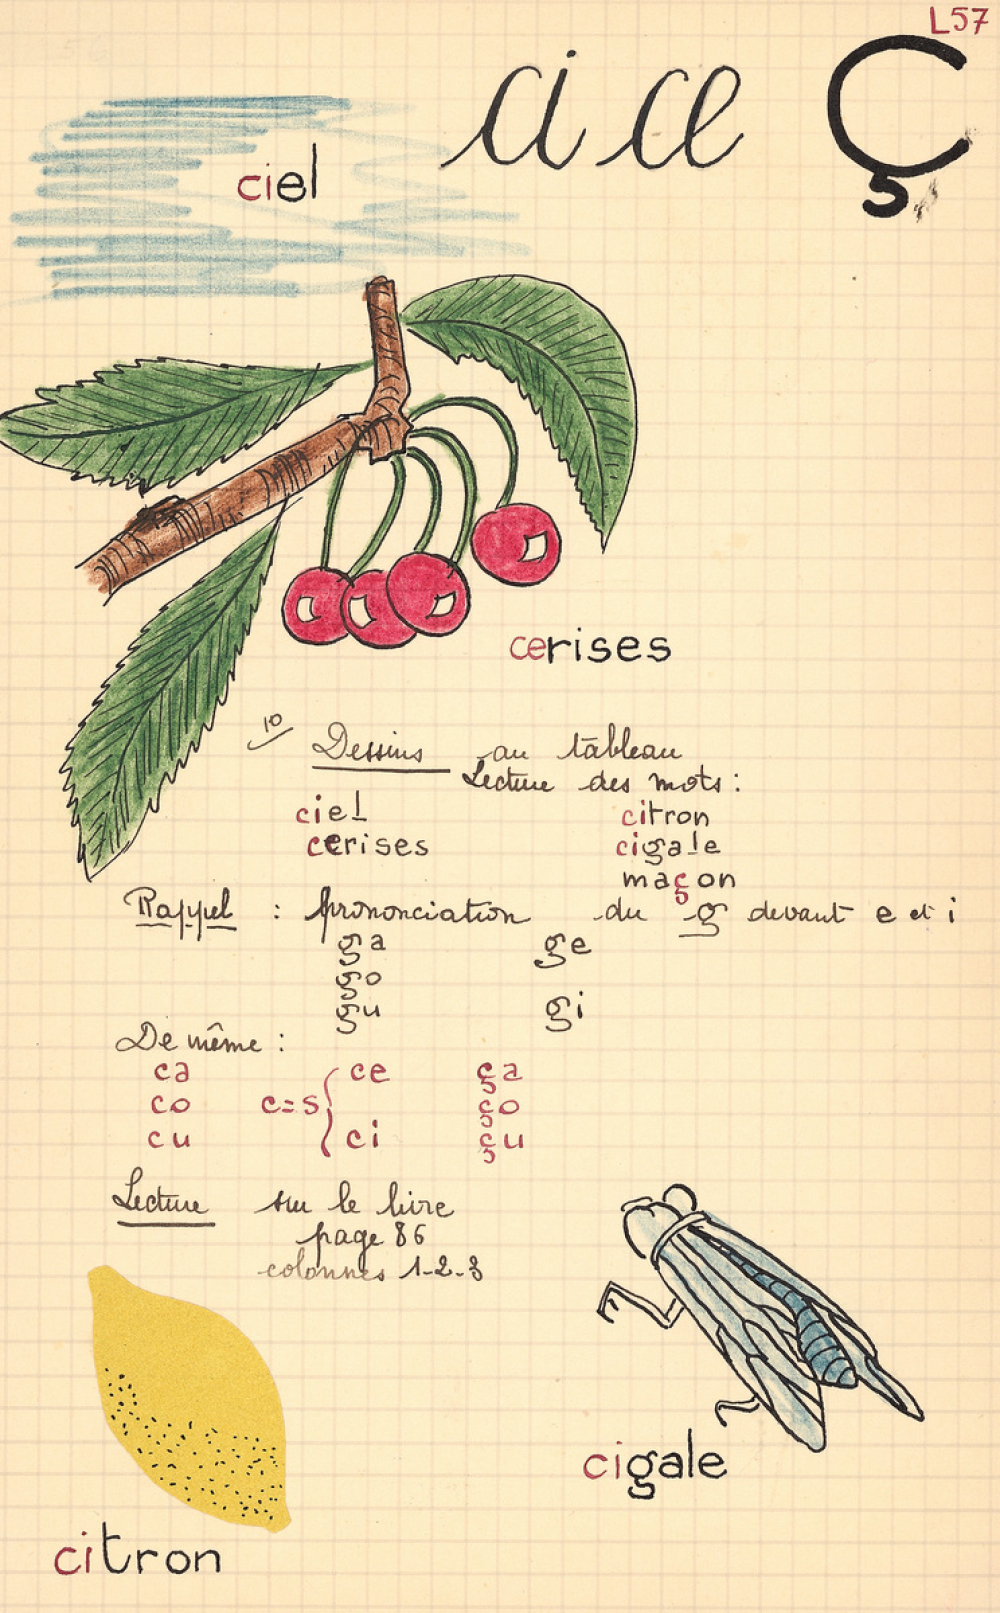 L57
ci ce Ç
ciel
cerises
1º Dessins au tableau
Lecture des mots :
ciel citron
cerises cigale
maçon
Rappel : prononciation du g devant e et i
ga ge
go
gu gi
De même :
ca ce ça
co c=s ço
cu ci çu
Lecture sur le livre
page 86
colonnes 1-2-3
cigale
citron